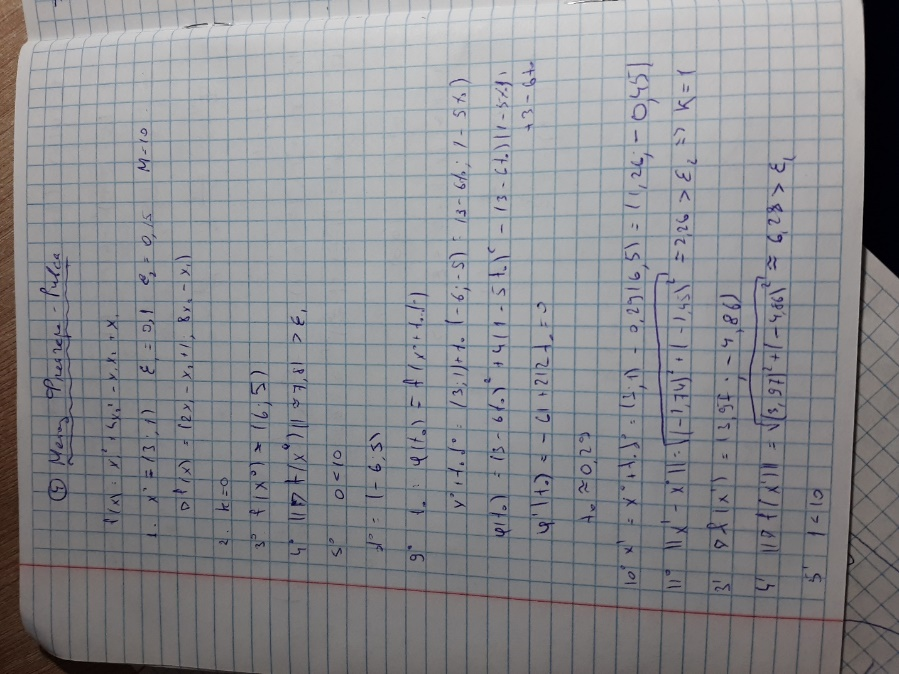 ④ Метод Флетчера - Ривса
f(x) = x₁² + 4x₂² - x₁x₂ + x₁
1. x⁰ = (3; 1) ε₁ = 0,1 ε₂ = 0,15 M=10
∇f(x) = (2x₁ - x₂+1, 8x₂ - x₁)
2. k=0
3⁰ f(x⁰) = (6; 5)
4⁰ ||∇f(x⁰)|| ≈ 7,81 > ε₁
5⁰ 0<10
d⁰ = (-6; 5)
9⁰ t₀: φ(t₀) = f(x⁰+t₀
x⁰+t₀d⁰ = (3; 1)+t₀(-6; -5) = (3-6t₀; 1-5t₀)
φ(t₀) = (3-6t₀)² + 4(1-5t₀)² - (3-6t₀)(1-5t₀)+
+3-6t₀
φ'(t₀) = -61+212t₀ = 0
t₀ ≈ 0,29
10⁰ x¹ = x⁰+t₀d⁰ = (3; 1) - 0,29(6, 5) = (1,26; -0,45)
11⁰ ||x¹ - x⁰|| = √(-1,74)²+(-1,45)² = 2,26 > ε₂ => K=1
3¹ ∇f(x¹) = (3,97; -4,86)
4¹ ||∇f(x¹)|| = √(3,97)²+(-4,86)² ≈ 6,28 > ε₁
5¹ 1<10